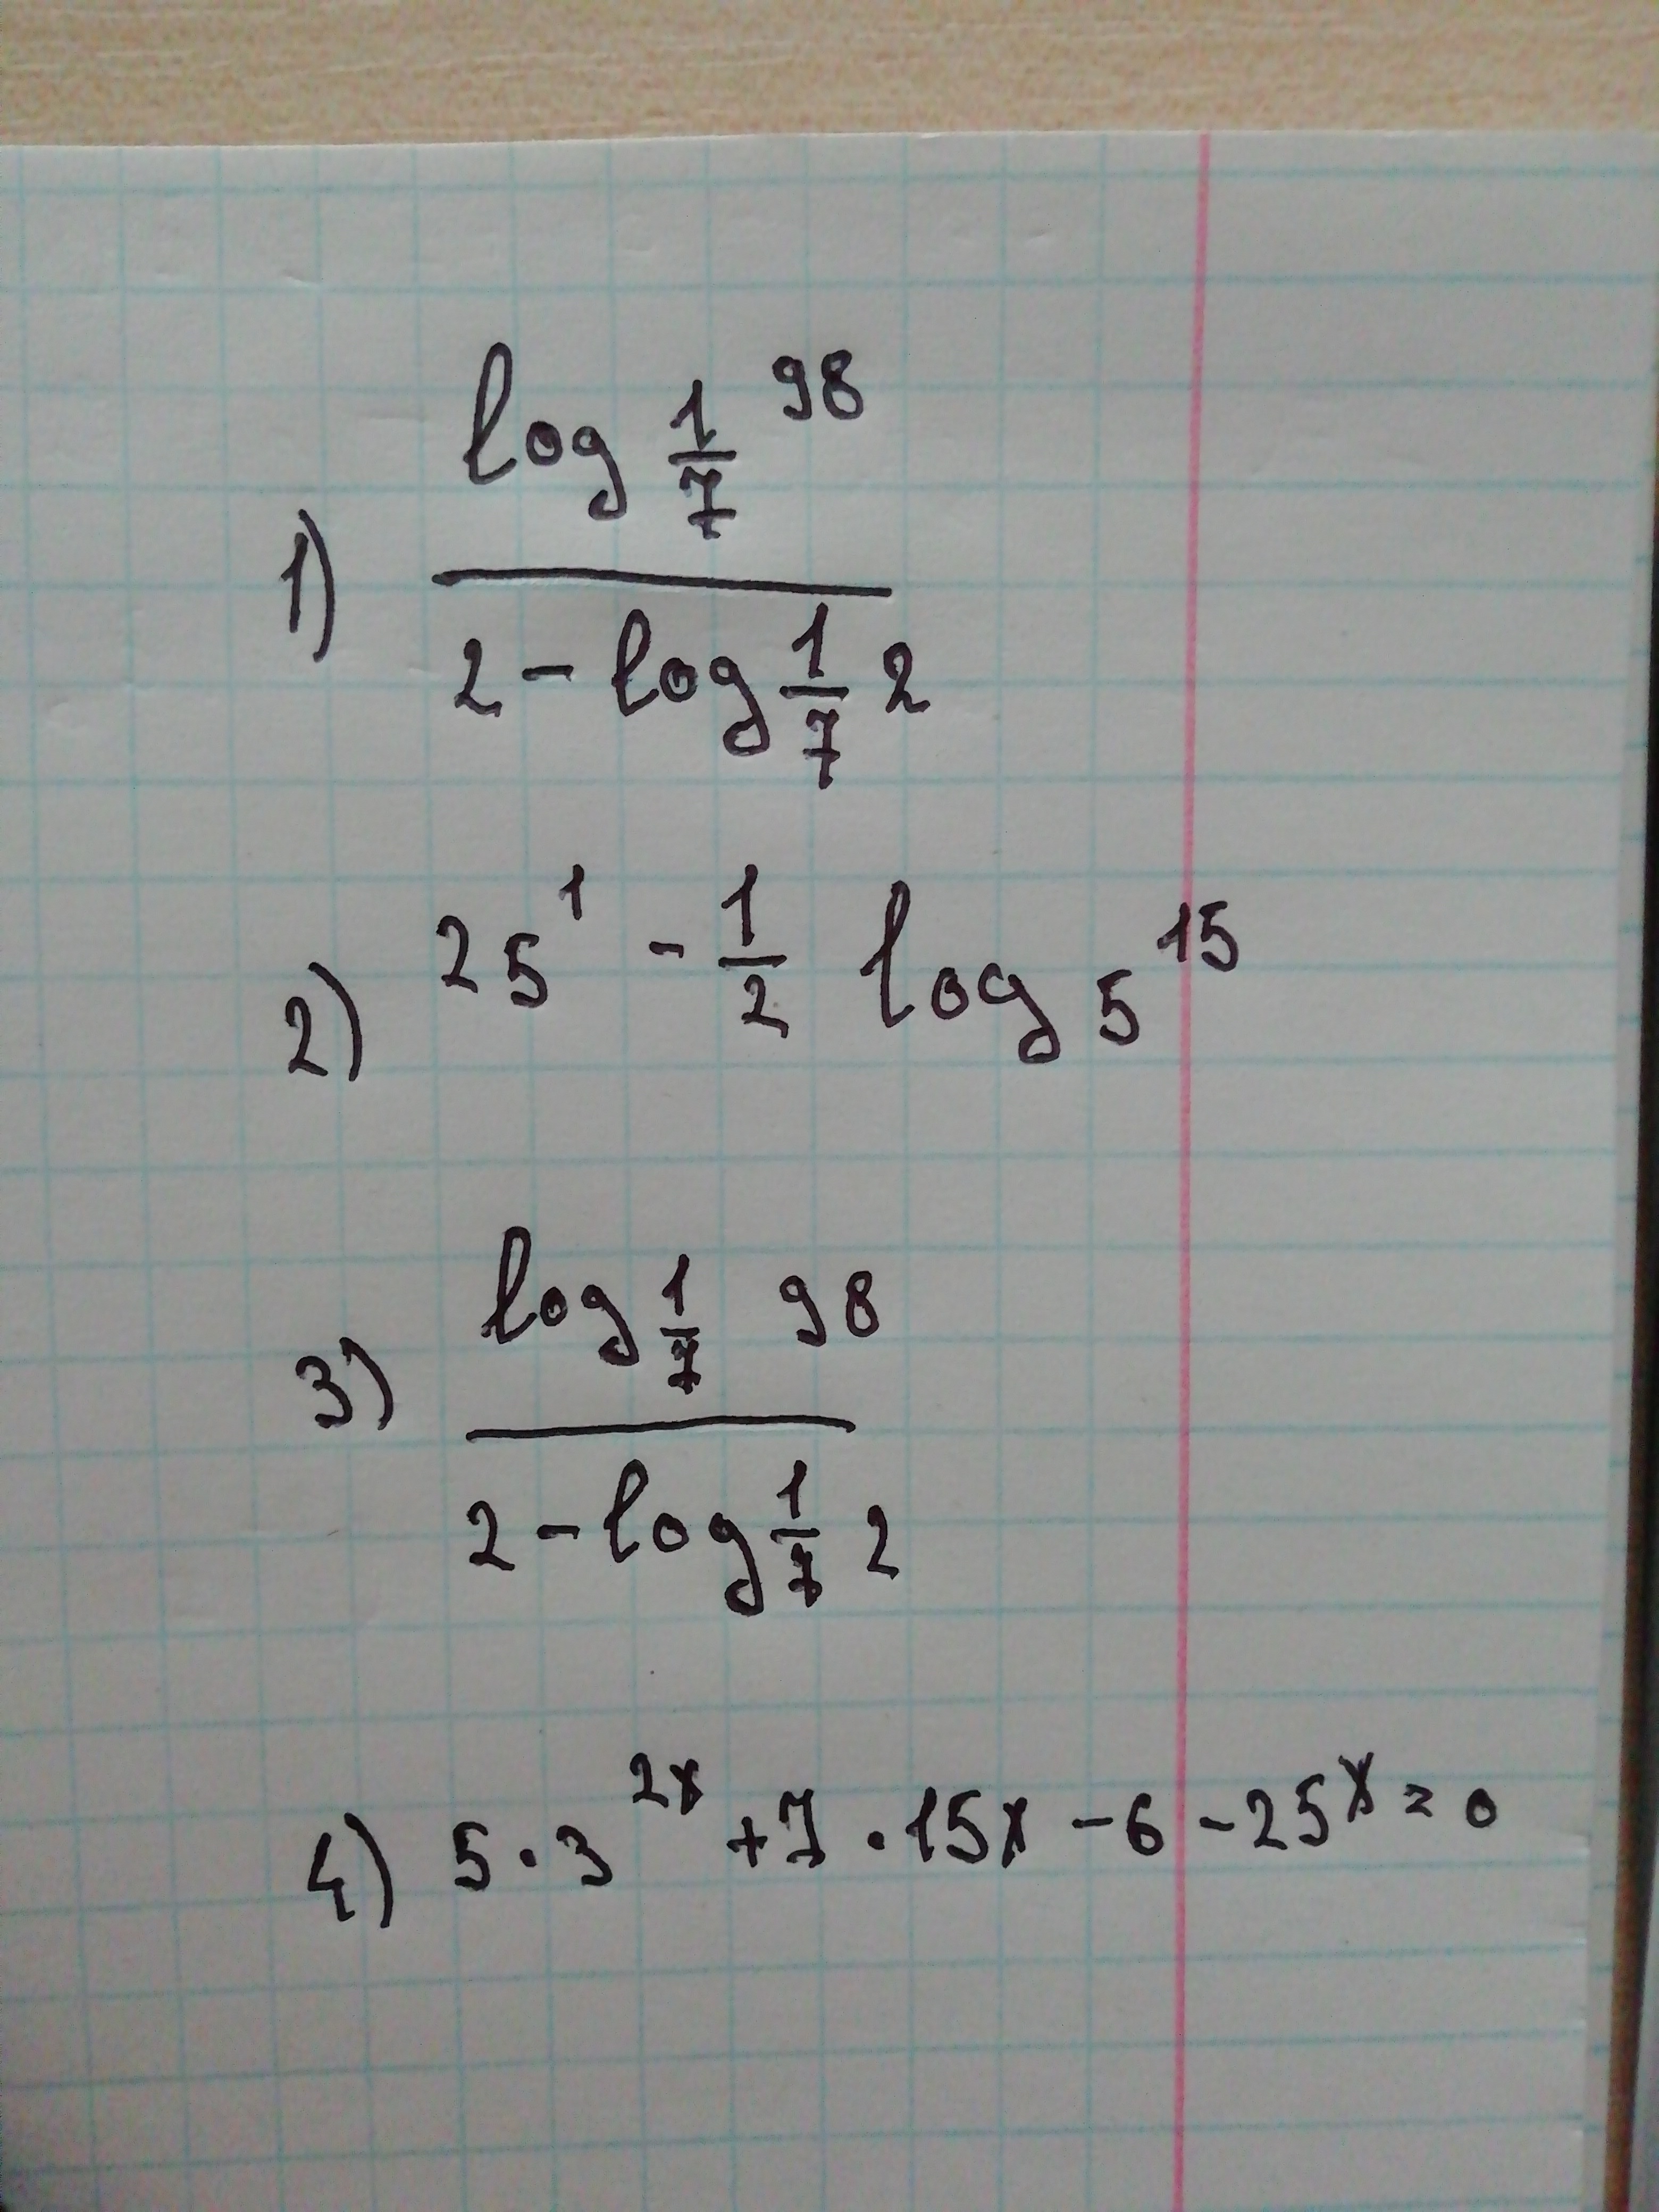 1) log 1/7 98
2 - log 1/7 2
2) 25¹ - 1/2 log 5 15
3) log 1/7 98
2 - log 1/7 2
4) 5 · 3²ˣ + 7 · 15x - 6 - 25ˣ = 0